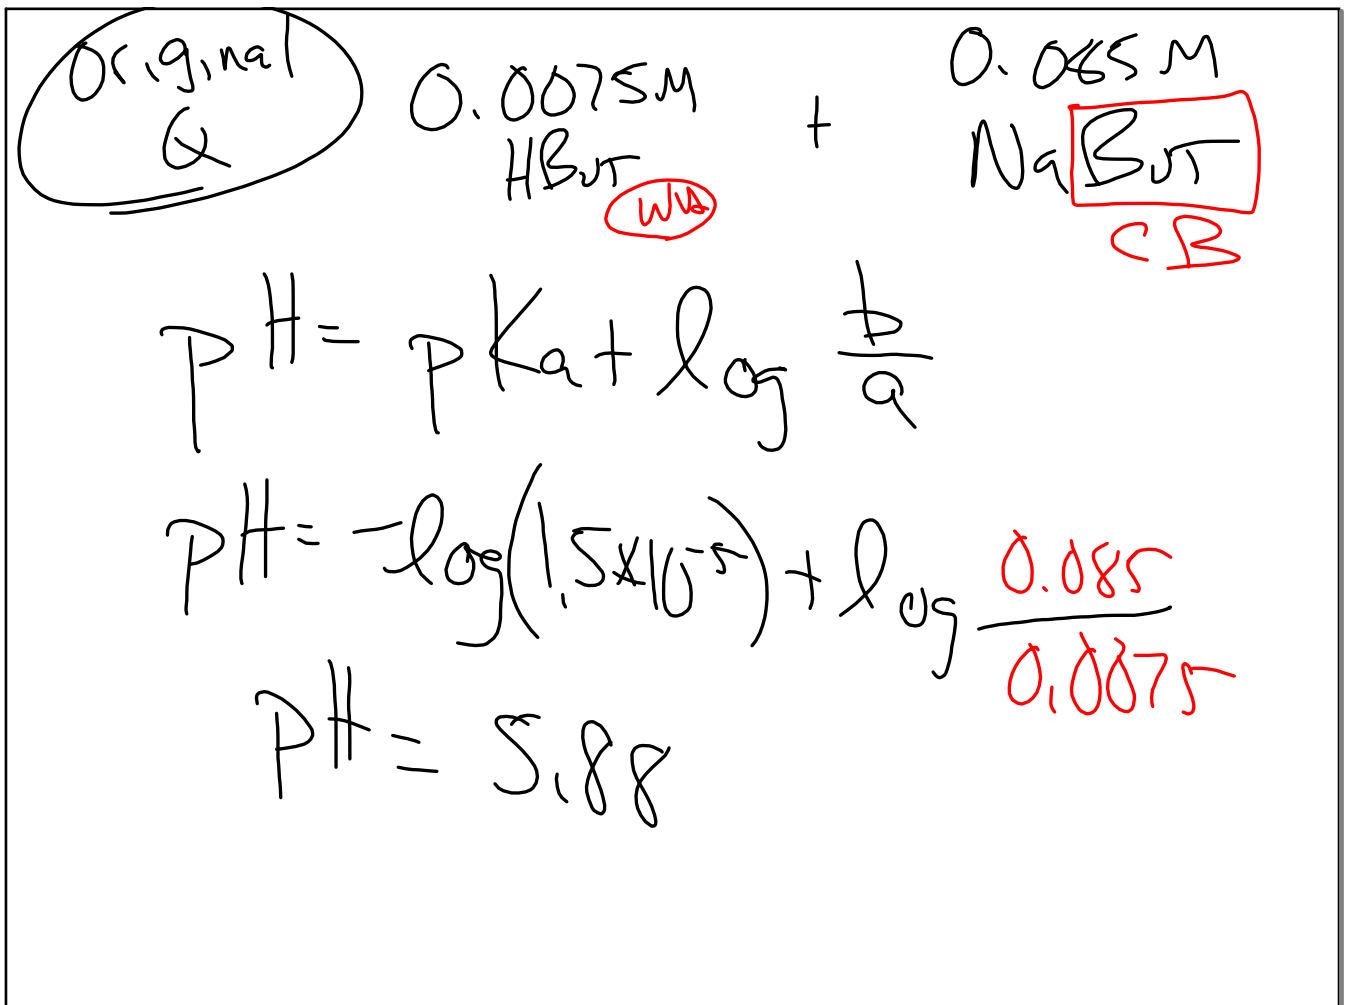 Original Q
0.0075M HBut + 0.085 M NaBut
WA
CB
pH = pKa + log b/a
pH = -log(1.5x10^-5) + log 0.085/0.0075
pH = 5.88